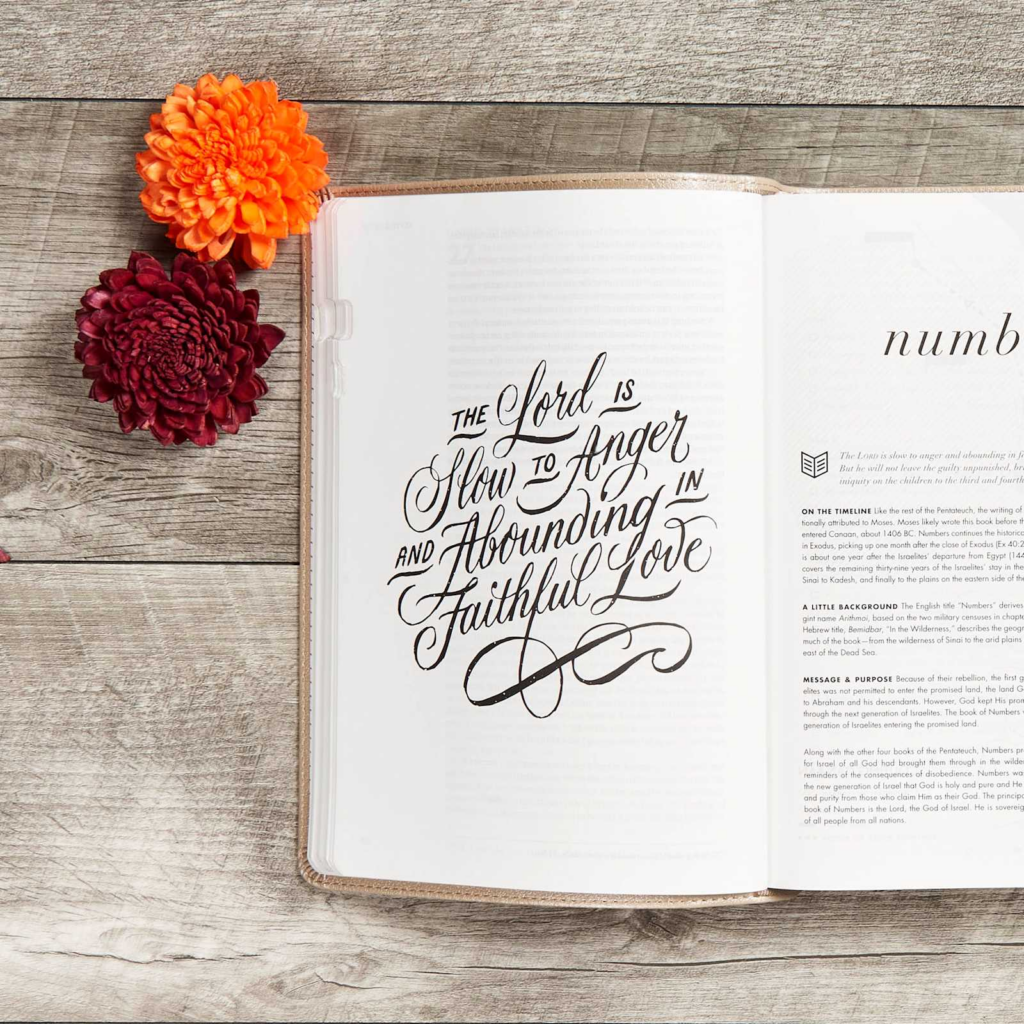 THE Lord IS
Slow TO Anger
AND Abounding IN
Faithful Love
numb
The LORD is slow to anger and abounding in f
But he will not leave the guilty unpunished, br
iniquity on the children to the third and fourth
ON THE TIMELINE Like the rest of the Pentateuch, the writing of
tionally attributed to Moses. Moses likely wrote this book before th
entered Canaan, about 1406 BC. Numbers continues the historica
in Exodus, picking up one month after the close of Exodus (Ex 40:2
is about one year after the Israelites' departure from Egypt (144
covers the remaining thirty-nine years of the Israelites' stay in the
Sinai to Kadesh, and finally to the plains on the eastern side of the
A LITTLE BACKGROUND The English title "Numbers" derives
gint name Arithmoi, based on the two military censuses in chapte
Hebrew title, Bemidbar, "In the Wilderness," describes the geogr
much of the book—from the wilderness of Sinai to the arid plains
east of the Dead Sea.
MESSAGE & PURPOSE Because of their rebellion, the first g
elites was not permitted to enter the promised land, the land G
to Abraham and his descendants. However, God kept His prom
through the next generation of Israelites. The book of Numbers
generation of Israelites entering the promised land.
Along with the other four books of the Pentateuch, Numbers pr
for Israel of all God had brought them through in the wilder
reminders of the consequences of disobedience. Numbers wa
the new generation of Israel that God is holy and pure and He
and purity from those who claim Him as their God. The principa
book of Numbers is the Lord, the God of Israel. He is sovereig
of all people from all nations.